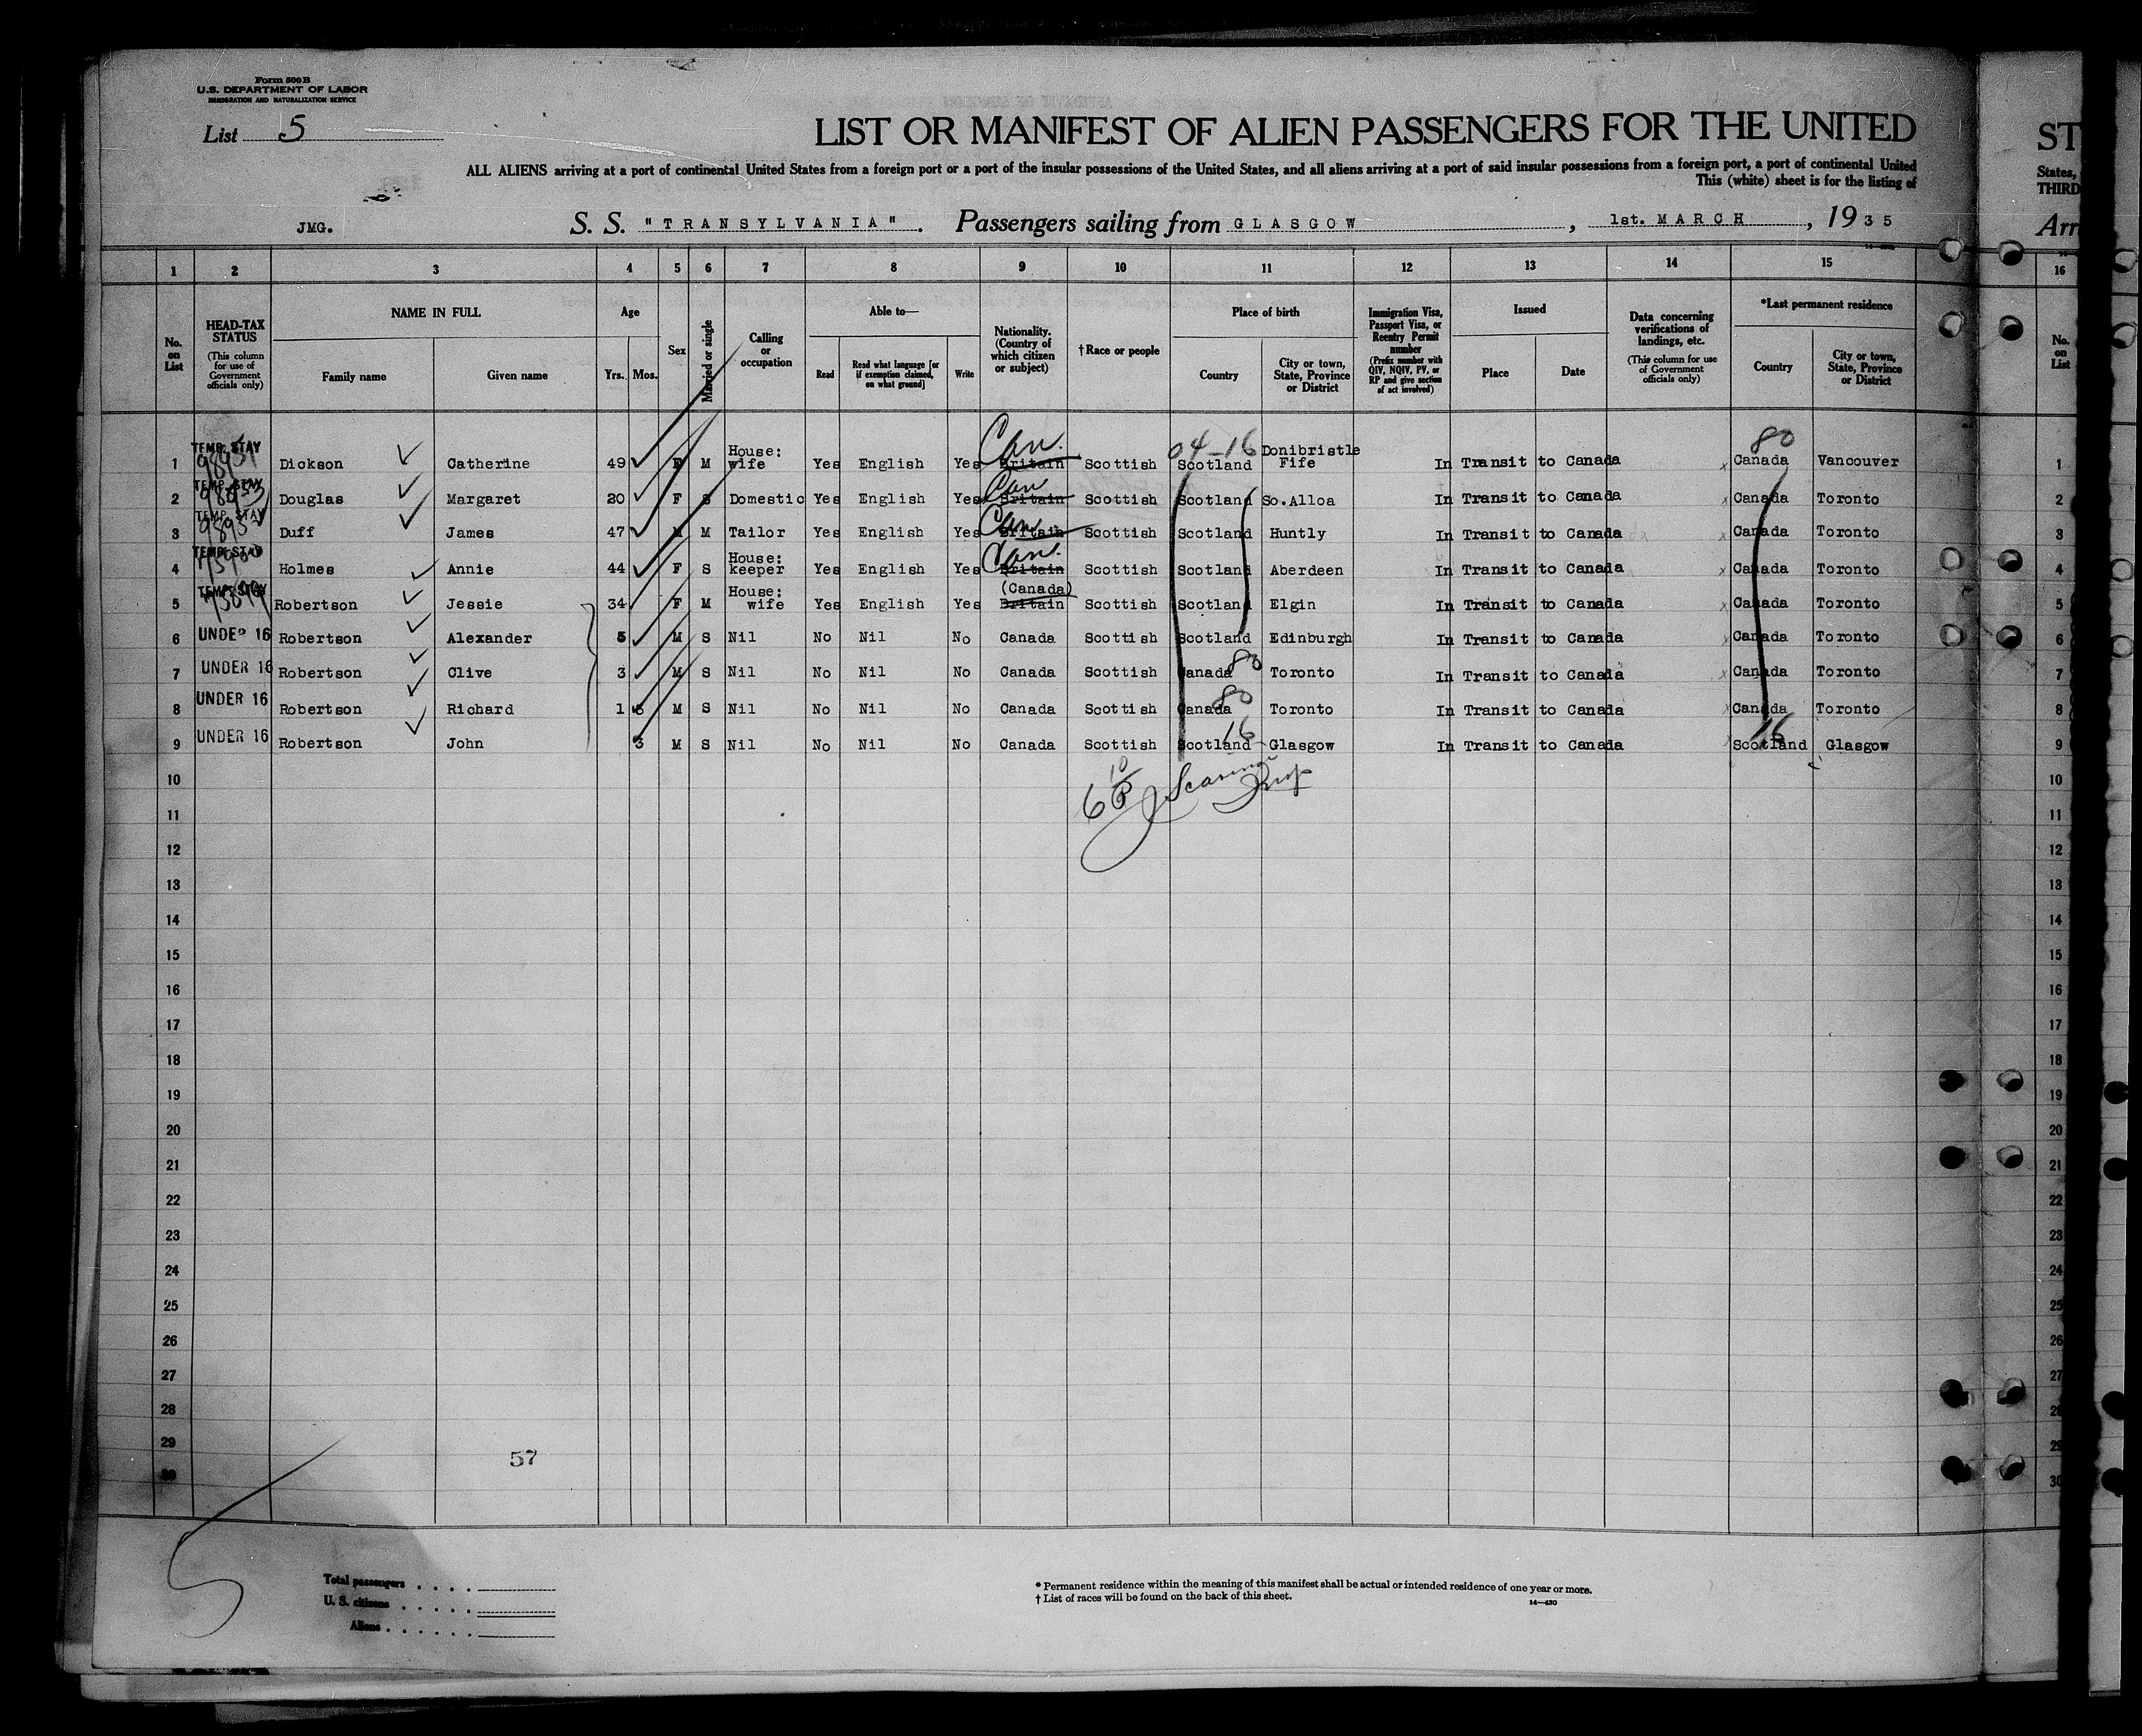 Form 500 B
U.S. DEPARTMENT OF LABOR
IMMIGRATION AND NATURALIZATION SERVICE
List 5
LIST OR MANIFEST OF ALIEN PASSENGERS FOR THE UNITED
ST
ALL ALIENS arriving at a port of continental United States from a foreign port or a port of the insular possessions of the United States, and all aliens arriving at a port of said insular possessions from a foreign port, a port of continental United
States,
This (white) sheet is for the listing of
THIRD
JMG. S. S. "TRANSYLVANIA". Passengers sailing from GLASGOW, 1st. MARCH, 1935
Arri
1 2 3 4 5 6 7 8 9 10 11 12 13 14 15 16
No. on List
HEAD-TAX STATUS
(This column for use of Government officials only)
NAME IN FULL
Family name Given name
Age
Yrs. Mos.
Sex
Married or single
Calling or occupation
Able to—
Read
Read what language [or if exemption claimed, on what ground]
Write
Nationality. (Country of which citizen or subject)
†Race or people
Place of birth
Country
City or town, State, Province or District
Immigration Visa, Passport Visa, or Reentry Permit number
(Prefix number with QIV, NQIV, PV, or RP and give section of act involved)
Issued
Place Date
Data concerning verifications of landings, etc.
(This column for use of Government officials only)
*Last permanent residence
Country
City or town, State, Province or District
No. on List
1 TEMP. STAY Dickson Catherine 49 F M House: wife Yes English Yes Britain Can. Scottish 04-16 Scotland Donibristle Fife In Transit to Canada 80 Canada Vancouver 1
2 TEMP. STAY Douglas Margaret 20 F S Domestic Yes English Yes Britain Can Scottish Scotland So.Alloa In Transit to Canada Canada Toronto 2
3 TEMP. STAY Duff James 47 M M Tailor Yes English Yes Britain Can. Scottish Scotland Huntly In Transit to Canada Canada Toronto 3
4 TEMP. STAY Holmes Annie 44 F S House: keeper Yes English Yes Britain Can. Scottish Scotland Aberdeen In Transit to Canada Canada Toronto 4
5 TEMP. STAY Robertson Jessie 34 F M House: wife Yes English Yes (Canada) Britain Scottish Scotland Elgin In Transit to Canada Canada Toronto 5
6 UNDER 16 Robertson Alexander 5 M S Nil No Nil No Canada Scottish Scotland Edinburgh In Transit to Canada Canada Toronto 6
7 UNDER 16 Robertson Clive 3 M S Nil No Nil No Canada Scottish Canada 80 Toronto In Transit to Canada Canada Toronto 7
8 UNDER 16 Robertson Richard 1 M S Nil No Nil No Canada Scottish Canada 80 Toronto In Transit to Canada Canada Toronto 8
9 UNDER 16 Robertson John 3 M S Nil No Nil No Canada Scottish Scotland 16 Glasgow In Transit to Canada 16 Scotland Glasgow 9
10 10
11 11
12 12
13 13
14 14
15 15
16 16
17 17
18 18
19 19
20 20
21 21
22 22
23 23
24 24
25 25
26 26
27 27
28 28
29 57 29
30 30
5
Total passengers
U. S. citizens
Aliens
* Permanent residence within the meaning of this manifest shall be actual or intended residence of one year or more.
† List of races will be found on the back of this sheet.
14—480